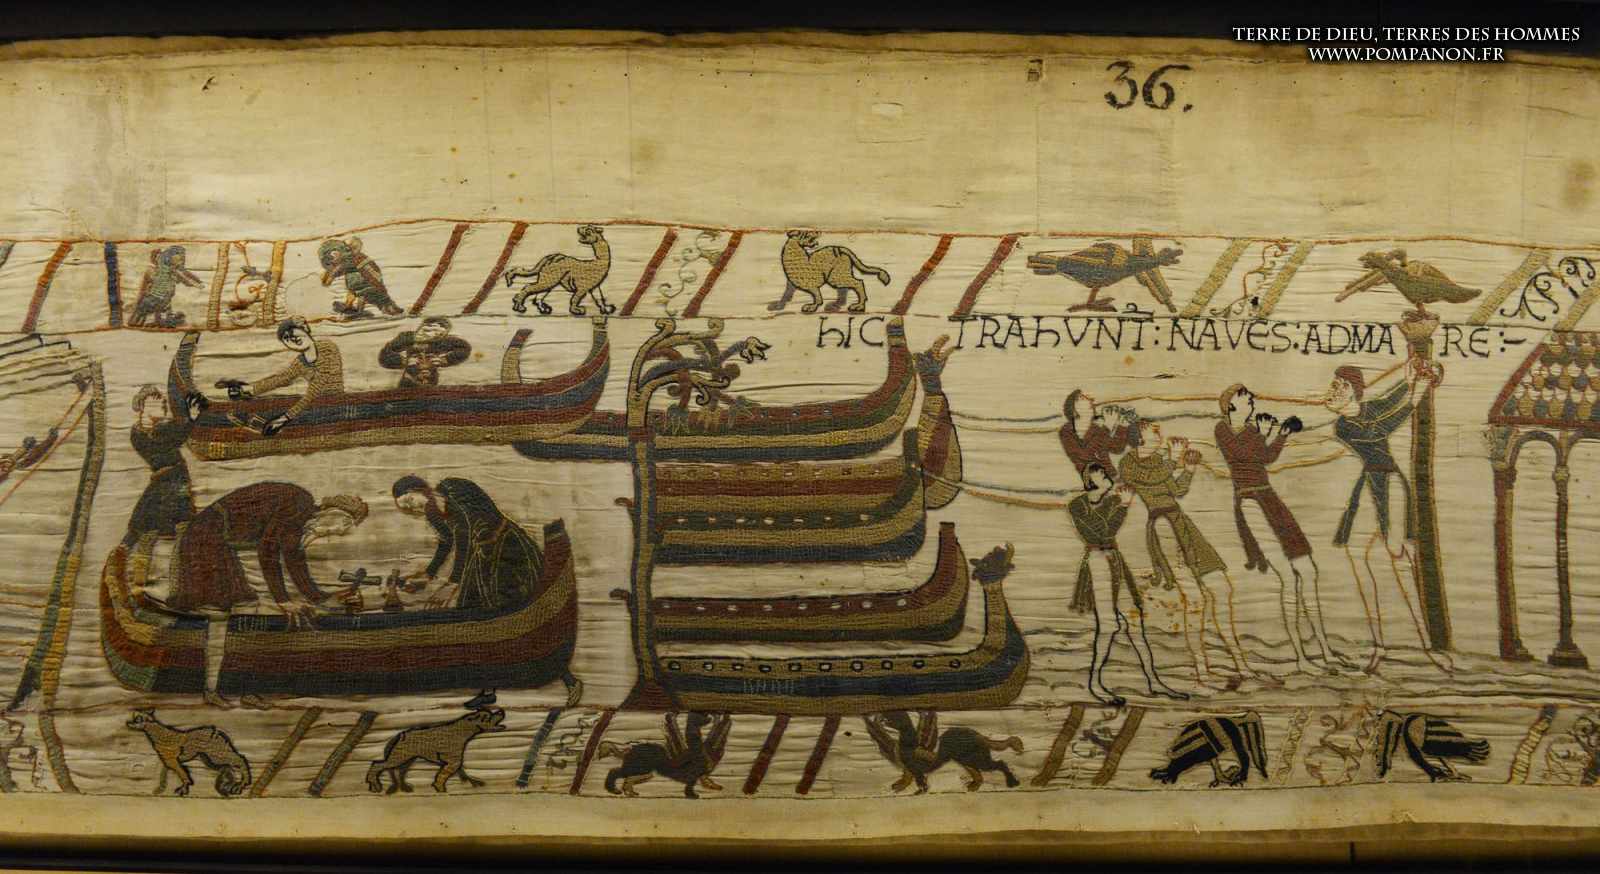 TERRE DE DIEU, TERRES DES HOMMES
WWW.POMPANON.FR
36.
hIC TRAhVNT̄: NAVES: ADMARE:-